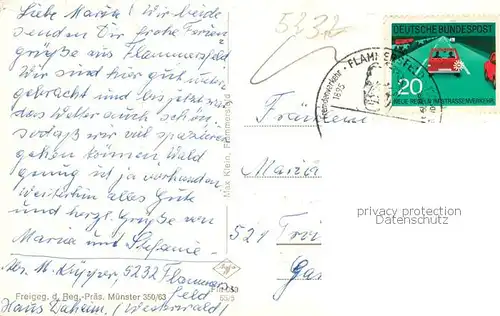 Liebe Maria! Wir beide
senden Dir frohe Ferien-
grüße aus Flammersfeld
Wir sind hier gut unter-
gebracht und bis jetzt war
das Wetter auch schön,
sodaß wir viel spazieren
gehen können. Wald
genug ist ja vorhanden
Weiterhin alles Gute
und herzl. Grüße von
Maria und Stefanie
Abs. M. Küpper, 5232 Flammers-
feld
Haus Daheim, (Westerwald)
Freigeg. d. Reg.-Präs. Münster 350/63
Max Klein, Flammersfeld
Agfa
5232
FLAMMERSFELD
DEUTSCHE BUNDESPOST
20
NEUE REGELN IM STRASSENVERKEHR
Fräulein
Maria
521 Troi
Gas
privacy protection